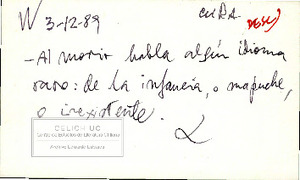 W 3-12-89
CURA
- Al morir habla algún idioma
raro: de la infancia, o mapuche,
o inexistente.
CELICH UC
Centro de Estudios de Literatura Chilena